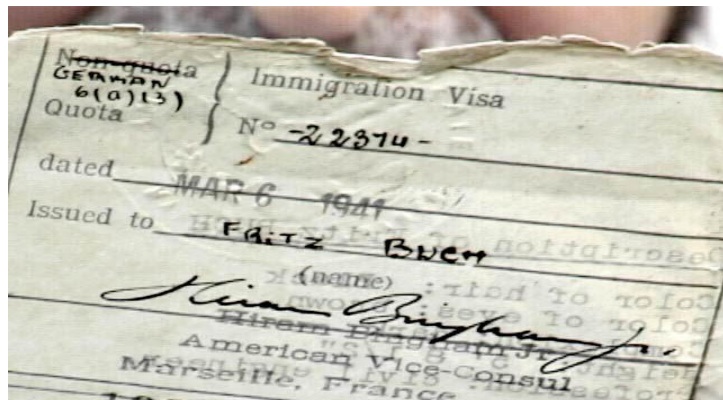 Non-quota
GERMAN
6(a)(3)
Quota
Immigration Visa
No -22374-
dated MAR 6 1941
Issued to FRITZ BUCH
(name)
Hiram Bingham Jr.
Hiram Bingham Jr
American Vice-Consul
Marseille, France